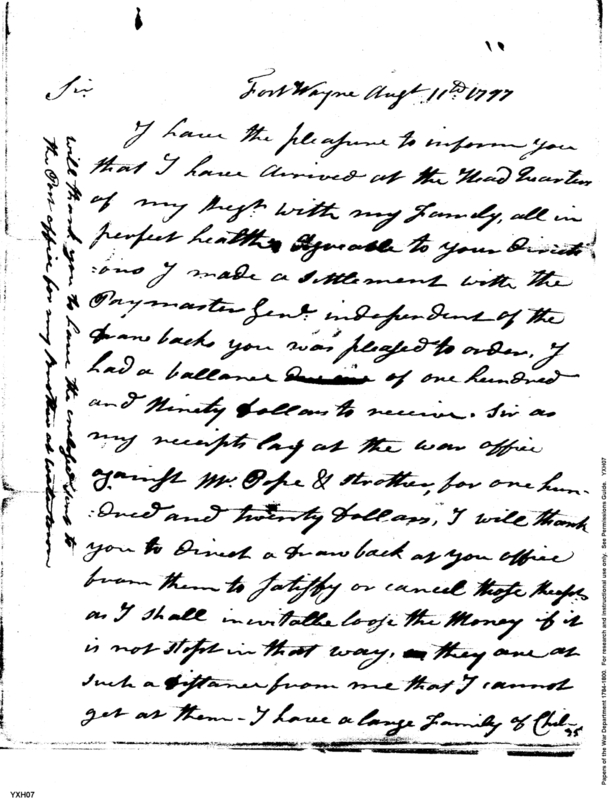 Fort Wayne Augt 11th 1797
Sir
I have the pleasure to inform you
that I have arrived at the Head Quarters
of my Regt with my Family, all in
perfect health, Agreeable to your Directi
:ons I made a settlement with the
Paymaster Genl. independent of the
Drawbacks you was pleased to order. I
had a ballance of one hundred
and Ninety Dollars to receive. Sir as
my receipts lay at the war office
against Mr. Pope & Strother, for one hun-
:dred and twenty Dollars, I will thank
you to Direct a Drawback at you office
from them to Satisfy or cancel those Receipts
as I shall inevitable loose the Money if it
is not stopt in that way, they are at
such a Distance from me that I cannot
get at them - I have a large Family of Chil-
will thank you to have the enclosed sent to
the Post office for my Brother at
95
Papers of the War Department 1784-1800. For research and instructional use only. See Permissions Guide. YXH07
YXH07